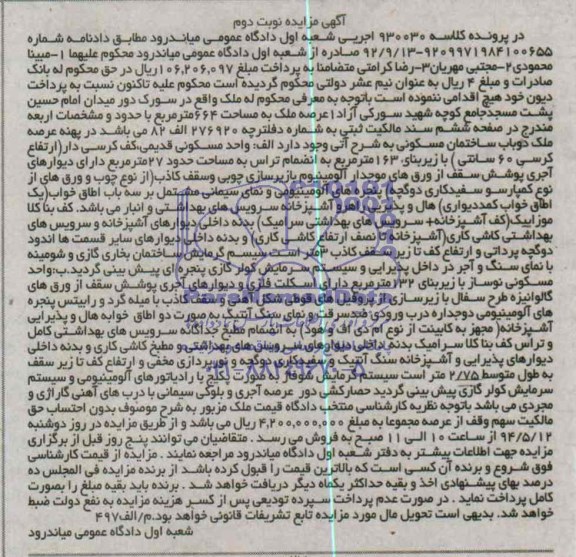 آگهی مزایده نوبت دوم
در پرونده کلاسه ۹۳۰۰۳۰ اجریی شعبه اول دادگاه عمومی میاندرود مطابق دادنامه شماره
۹۲/۹/۱۳-۹۲۰۹۹۷۱۹۸۴۱۰۰۶۵۵ صادره از شعبه اول دادگاه عمومی میاندرود محکوم علیهما ۱-مبینا
محمودی۲-مجتبی مهریان۳-رضا کرامتی متضامنا به پرداخت مبلغ ۱۰۶,۲۰۶,۰۹۷ریال در حق محکوم له بانک
صادرات و مبلغ ۴ ریال به عنوان نیم عشر دولتی محکوم گردیده است محکوم علیه تاکنون نسبت به پرداخت
دیون خود هیچ اقدامی ننموده است باتوجه به معرفی محکوم له ملک واقع در سورک دور میدان امام حسین
پشت مسجدجامع کوچه شهید سورکی آزاد۱عرصه ملک به مساحت ۶۶۴مترمربع با حدود و مشخصات اربعه
مندرج در صفحه ششم سند مالکیت ثبتی به شماره دفترچه ۲۷۶۹۲۰ الف ۸۲ می باشد در پهنه عرصه
ملک دوباب ساختمان مسکونی به شرح آتی وجود دارد الف: واحد مسکونی قدیمی،کف کرسی دار(ارتفاع
کرسی ۶۰ سانتی ) با زیربنای ۱۶۳مترمربع به انضمام تراس به مساحت حدود ۲۷مترمربع دارای دیوارهای
آجری پوشش سقف از ورق های موجدار آلومینیوم بازیرسازی چوبی وسقف کاذب(از نوع چوب و ورق های از
نوع کمپارسو سفیدکاری دوگچه ) پنجره های آلومینیومی و نمای سیمانی مشتمل بر سه باب اطاق خواب(یک
اطاق خواب کمددیواری) هال و پذیرایی راهرو آشپزخانه سرویس های بهداشتی و انبار می باشد. کف بنا کلا
موزاییک(کف آشپزخانه+ سرویس های بهداشتی سرامیک) بدنه داخلی دیوارهای آشپزخانه و سرویس های
بهداشتی کاشی کاری(آشپزخانه تا نصف ارتفاع کاشی کاری) و بدنه داخلی دیوارهای سایر قسمت ها اندود
دوگچه پرداتی و ارتفاع کف تا زیر سقف کاذب ۳متر است سیستم گرمایش ساختمان بخاری گازی و شومینه
با نمای سنگ و آجر در داخل پذیرایی و سیستم سرمایش کولر گازی پنجره ای پیش بینی گردید.ب:واحد
مسکونی نوساز با زیربنای ۱۳۲مترمربع دارای اسکلت فلزی و دیوارهای آجری پوشش سقف از ورق های
گالوانیزه طرح سفال با زیرسازی از پروفیل های قوطی شکل آهنی و سقف کاذب با میله گرد و رابیتس پنجره
های آلومینیومی دوجداره درب ورودی ضدسرقت و نمای سنگ آنتیک به صورت دو اطاق خوابه هال و پذیرایی
آشپزخانه( مجهز به کابینت از نوع ام دی اف و هود) به انضمام مطبخ جداگانه سرویس های بهداشتی کامل
و تراس کف بنا کلا سرامیک بدنه داخلی دیوارهای سرویس های بهداشتی و مطبخ کاشی کاری و بدنه داخلی
دیوارهای پذیرایی و آشپزخانه سنگ آنتیک و سفیدکاری دوگچه و نورپردازی مخفی و ارتفاع کف تا زیر سقف
به طول متوسط ۲/۷۵ متر است سیستم گرمایش شوفاژ به صورت پکیج با رادیاتور های آلومینیومی و سیستم
سرمایش کولر گازی پیش بینی گردید حصارکشی دور عرصه آجری و بلوکی سیمانی با درب های آهنی گاراژی و
مجردی می باشد باتوجه نظریه کارشناسی منتخب دادگاه قیمت ملک مزبور به شرح موصوف بدون احتساب حق
مالکیت سهم وقف از عرصه مجموعا به مبلغ ۴,۲۰۰,۰۰۰,۰۰۰ ریال می باشد و از طریق مزایده در روز دوشنبه
۹۴/۵/۱۲ از ساعت ۱۰ الی ۱۱ صبح به فروش می رسد . متقاضیان می توانند پنج روز قبل از برگزاری
مزایده جهت اطلاعات بیشتر به دفتر شعبه اول دادگاه میاندرود مراجعه نمایند . مزایده از قیمت کارشناسی
فوق شروع و برنده آن کسی است که بالاترین قیمت را قبول کرده باشد از برنده مزایده فی المجلس ده
درصد بهای پیشنهادی اخذ و بقیه حداکثر یکماه دیگر دریافت خواهد شد . برنده باید بقیه مبلغ را بصورت
کامل پرداخت نماید . در صورت عدم پرداخت سپرده تودیعی پس از کسر هزینه مزایده به نفع دولت ضبط
خواهد شد. بدیهی است تحویل مال مورد مزایده تابع تشریفات قانونی خواهد بود.م/الف۴۹۷
شعبه اول دادگاه عمومی میاندرود